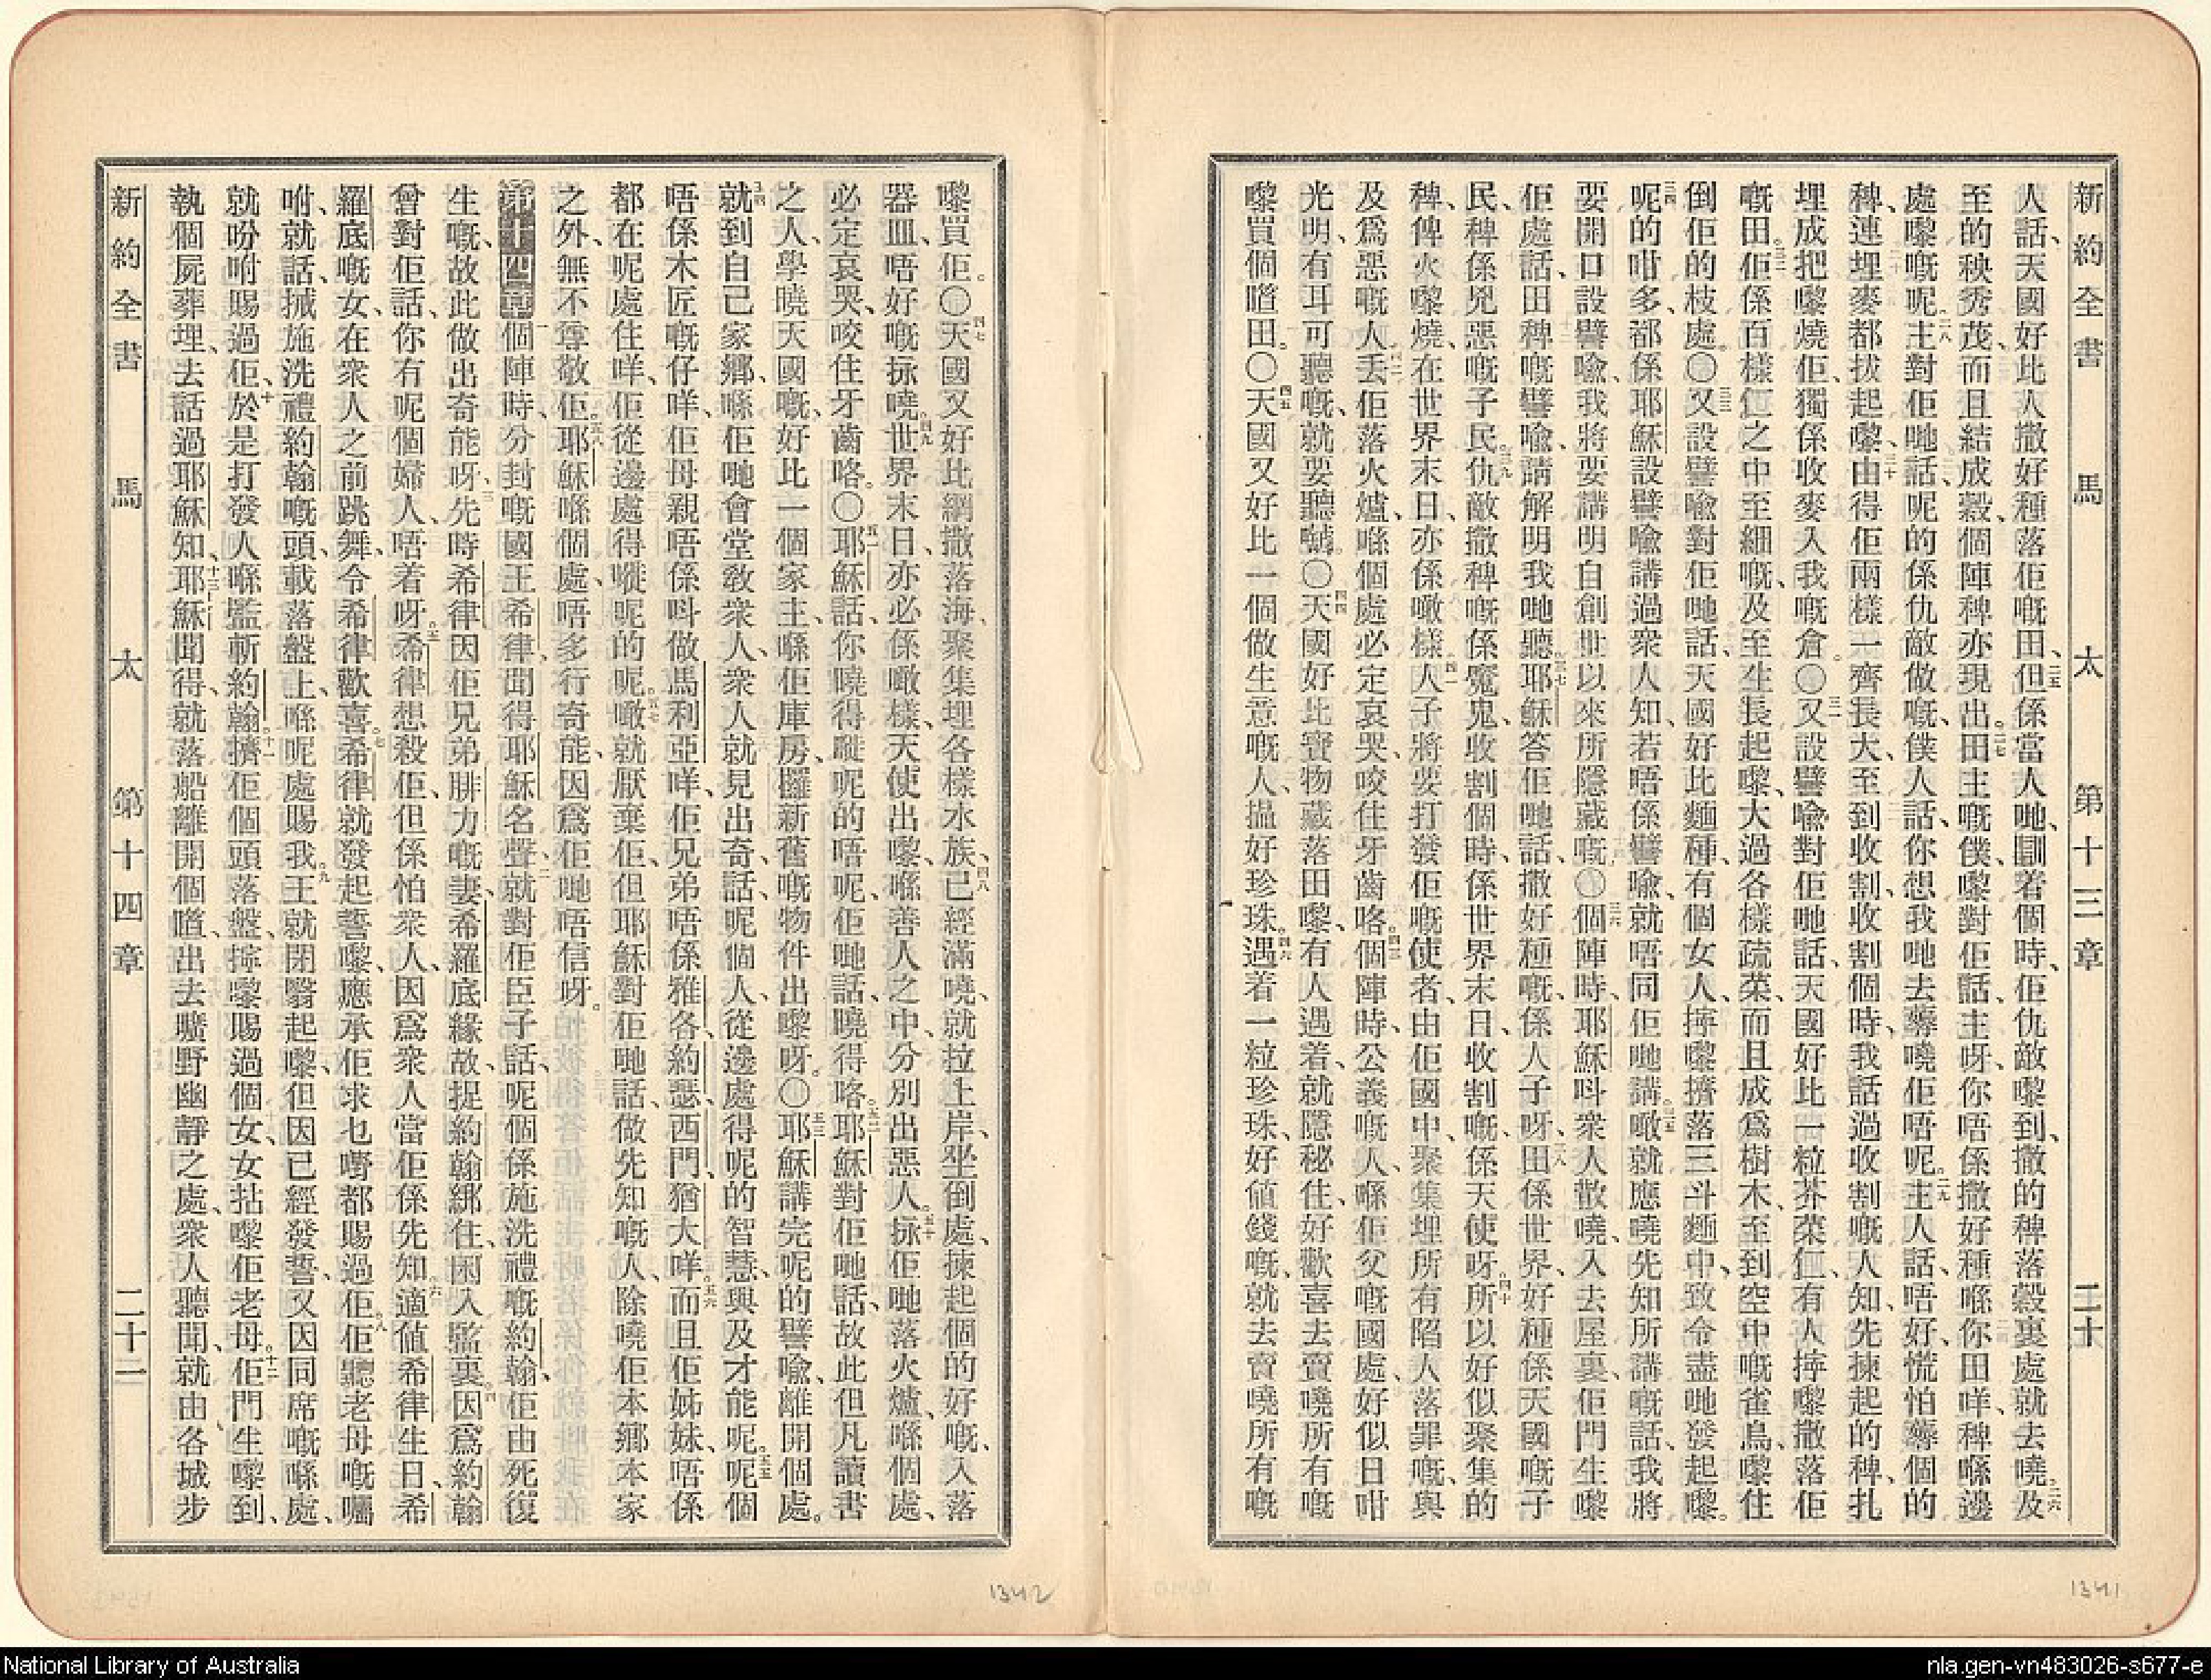 新約全書 馬太 第十三章 二十
人話、天國好比人撒好種落佢嘅田、二五但係當人哋瞓着個時、佢仇敵嚟到、撒的稗落穀裏處就去嘵。二六及
至的秧秀茂、而且結成穀、個陣稗亦現出。二七田主嘅僕、嚟對佢話、主呀、你唔係撒好種喺你田咩、稗喺邊
處嚟嘅呢。二八主對佢哋話、呢的係仇敵做嘅、僕人話、你想我哋去薅嘵佢唔呢。二九主人話、唔好、慌怕薅個的
稗、連埋麥都拔起嚟、三十由得佢兩樣一齊長大、至到收割、收割個時、我話過收割嘅人知、先揀起的稗、扎
埋成把嚟燒佢、獨係收麥入我嘅倉。〇三一又設譬喩對佢哋話、天國好比一粒芥菜𠆩、有人擰嚟撒落佢
嘅田。三二佢係百樣𠆩之中至細嘅、及至生長起嚟、大過各樣蔬菜、而且成爲樹木、至到空中嘅雀鳥、嚟住
倒佢的枝處。〇三三又設譬喩對佢哋話、天國好比麵種、有個女人、擰嚟擠落三斗麵中、致令盡哋發起嚟。
三四呢的咁多、都係耶穌設譬喩講過衆人知、若唔係譬喩、就唔同佢哋講。三五噉就應嘵先知所講嘅話、我將
要開口設譬喩、我將要講明自創世以來所隱藏嘅。〇三六個陣時、耶穌呌衆人散嘵、入去屋裏、佢門生嚟
佢處話、田稗嘅譬喩、請解明我哋聽、三七耶穌答佢哋話、撒好種嘅、係人子呀、三八田係世界、好種係天國嘅子
民、稗係兇惡嘅子民。三九仇敵撒稗嘅係魔鬼、收割個時、係世界末日、收割嘅、係天使呀。四十所以好似聚集的
稗、俾火嚟燒、在世界末日、亦係噉樣。四一人子將要打發佢嘅使者、由佢國中、聚集埋所有陷人落罪嘅、與
及爲惡嘅人、四二丢佢落火爐、喺個處必定哀哭、咬住牙齒咯。四三個陣時、公義嘅人、喺佢父嘅國處、好似日咁
光明、有耳可聽嘅、就要聽囇。〇四四天國好比寶物藏落田嚟、有人遇着、就隱秘住、好歡喜去賣嘵所有嘅
嚟買個噔田。〇四五天國又好比一個做生意嘅人、揾好珍珠。四六遇着一粒珍珠、好値錢嘅、就去賣嘵所有嘅
1341
嚟買佢。〇四七天國又好比網撒落海、聚集埋各樣水族、四八已經滿嘵、就拉上岸、坐倒處、揀起個的好嘅、入落
器皿、唔好嘅𢱕嘵。四九世界末日、亦必係噉樣、天使出嚟、喺善人之中、分別出惡人。五十𢱕佢哋落火爐、喺個處、
必定哀哭、咬住牙齒咯。〇五一耶穌話、你曉得嗮呢的唔呢、佢哋話、曉得咯。五二耶穌對佢哋話、故此但凡讀書
之人、學曉天國嘅、好比一個家主、喺佢庫房、攞新舊嘅物件出嚟呀。〇五三耶穌講完呢的譬喩、離開個處。
五四就到自己家鄉、喺佢哋會堂敎衆人、衆人就見出奇、話、呢個人、從邊處得呢的智慧、與及才能呢。五五呢個
唔係木匠嘅仔咩、佢母親唔係呌做馬利亞咩、佢兄弟唔係雅各、約瑟、西門、猶大咩。五六而且佢姊妹、唔係
都在呢處住咩、佢從邊處得嗮呢的呢。五七噉就厭棄佢、但耶穌對佢哋話、做先知嘅人、除嘵佢本鄉本家
之外、無不尊敬佢。五八耶穌喺個處、唔多行奇能、因爲佢哋唔信呀。
第十四章 一個陣時、分封嘅國王希律、聞得耶穌名聲、二就對佢臣子話、呢個係施洗禮嘅約翰、佢由死復
生嘅、故此做出奇能呀、三先時希律因佢兄弟腓力嘅妻、希羅底緣故、捉約翰綁住、困入監裏。四因爲約翰
曾對佢話、你有呢個婦人、唔着呀。五希律想殺佢、但係怕衆人、因爲衆人當佢係先知。六適值希律生日、希
羅底嘅女、在衆人之前跳舞、令希律歡喜。七希律就發起誓嚟、應承佢求乜嘢都賜過佢。八佢聽老母嘅囑
咐、就話、𢬿施洗禮約翰嘅頭、載落盤上、喺呢處賜我。九王就閉翳起嚟、但因已經發誓、又因同席嘅喺處、
就吩咐賜過佢、十於是打發人喺監斬約翰。十一擠佢個頭落盤、擰嚟賜過個女、女拈嚟佢老母。十二佢門生嚟到、
執個屍葬埋、去話過耶穌知、十三耶穌聞得、就落船離開個噔、出去曠野幽靜之處、衆人聽聞、就由各城步
新約全書 馬太 第十四章 二十二
1342
National Library of Australia
nla.gen-vn483026-s677-e